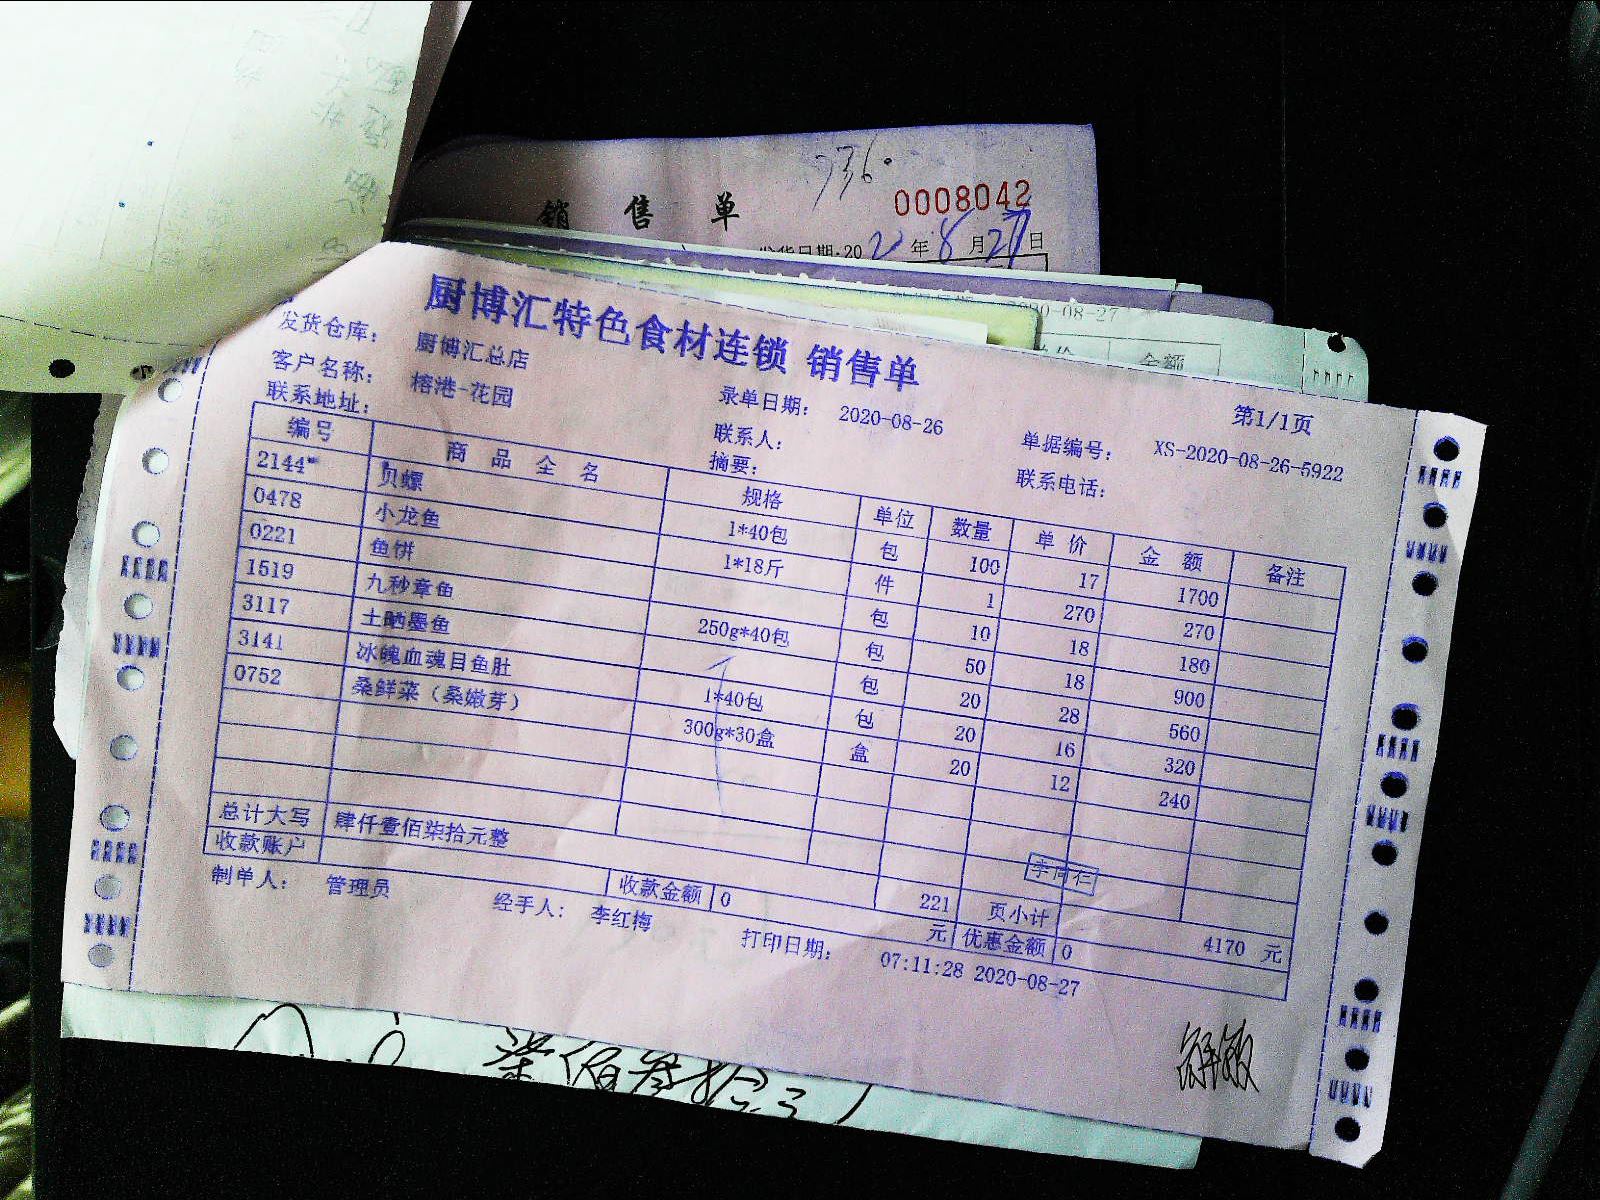 736.
销 售 单 0008042
发货日期:2020年8月27日
厨博汇特色食材连锁 销售单
第1/1页
发货仓库: 厨博汇总店 录单日期: 2020-08-26 单据编号: XS-2020-08-26-5922
客户名称: 榕港-花园 联系人: 联系电话:
联系地址: 摘要:
编号 商品全名 规格 单位 数量 单价 金额 备注
2144* 贝螺 1*40包 包 100 17 1700
0478 小龙鱼 1*18斤 件 1 270 270
0221 鱼饼 包 10 18 180
1519 九秒章鱼 250g*40包 包 50 18 900
3117 土晒墨鱼 包 20 28 560
3141 冰魄血魂目鱼肚 1*40包 包 20 16 320
0752 桑鲜菜（桑嫩芽） 300g*30盒 盒 20 12 240
总计大写 肆仟壹佰柒拾元整 221 页小计 4170 元
收款账户 收款金额 0 元 优惠金额 0
制单人: 管理员 经手人: 李红梅 打印日期: 07:11:28 2020-08-27